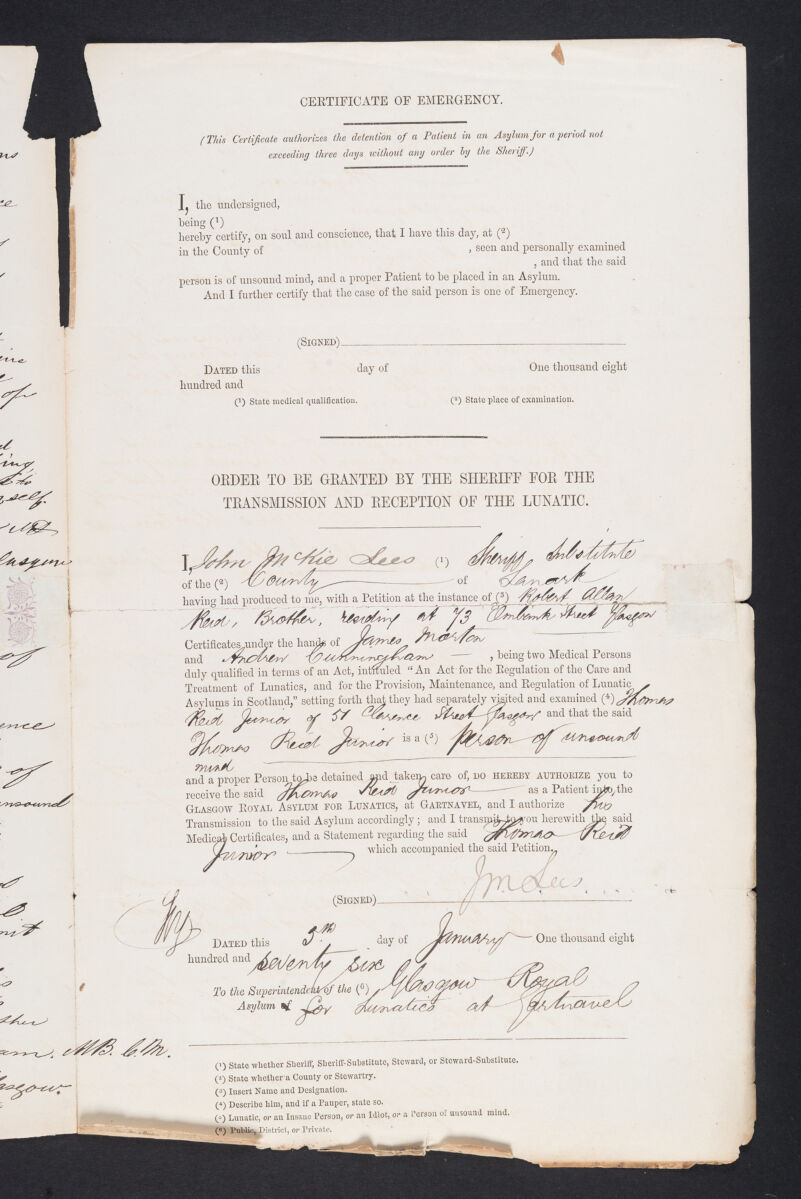 CERTIFICATE OF EMERGENCY.
(This Certificate authorizes the detention of a Patient in an Asylum for a period not
exceeding three days without any order by the Sheriff.)
I, the undersigned,
being (¹)
hereby certify, on soul and conscience, that I have this day, at (²)
in the County of , seen and personally examined
, and that the said
person is of unsound mind, and a proper Patient to be placed in an Asylum.
And I further certify that the case of the said person is one of Emergency.
(SIGNED)
DATED this day of One thousand eight
hundred and
(¹) State medical qualification. (²) State place of examination.
ORDER TO BE GRANTED BY THE SHERIFF FOR THE
TRANSMISSION AND RECEPTION OF THE LUNATIC.
I, John McKie Lees (¹) Sheriff Substitute
of the (²) County of Lanark
having had produced to me, with a Petition at the instance of (³) Robert Allan
Reid, Brother, residing at 73 Elmbank Street Glasgow
Certificates under the hands of James Morton
and Andrew Cunningham , being two Medical Persons
duly qualified in terms of an Act, intituled "An Act for the Regulation of the Care and
Treatment of Lunatics, and for the Provision, Maintenance, and Regulation of Lunatic
Asylums in Scotland," setting forth that they had separately visited and examined (⁴) Thomas
Reid Junior of 51 Clarence Street Glasgow and that the said
Thomas Reid Junior is a (⁵) person of unsound
mind
and a proper Person to be detained and taken care of, DO HEREBY AUTHORIZE you to
receive the said Thomas Reid Junior as a Patient into the
GLASGOW ROYAL ASYLUM FOR LUNATICS, at GARTNAVEL, and I authorize his
Transmission to the said Asylum accordingly; and I transmit to you herewith the said
Medical Certificates, and a Statement regarding the said Thomas Reid
Junior which accompanied the said Petition.
(SIGNED) J M Lees
DATED this 5th day of January One thousand eight
hundred and seventy six
To the Superintendent of the (⁶) Glasgow Royal
Asylum for Lunatics at Gartnavel
(¹) State whether Sheriff, Sheriff-Substitute, Steward, or Steward-Substitute.
(²) State whether a County or Stewartry.
(³) Insert Name and Designation.
(⁴) Describe him, and if a Pauper, state so.
(⁵) Lunatic, or an Insane Person, or an Idiot, or a Person of unsound mind.
(⁶) Public, District, or Private.
of
self.
Glasgow
of
ence
of
unsound
M.B. C.M.
Glasgow.